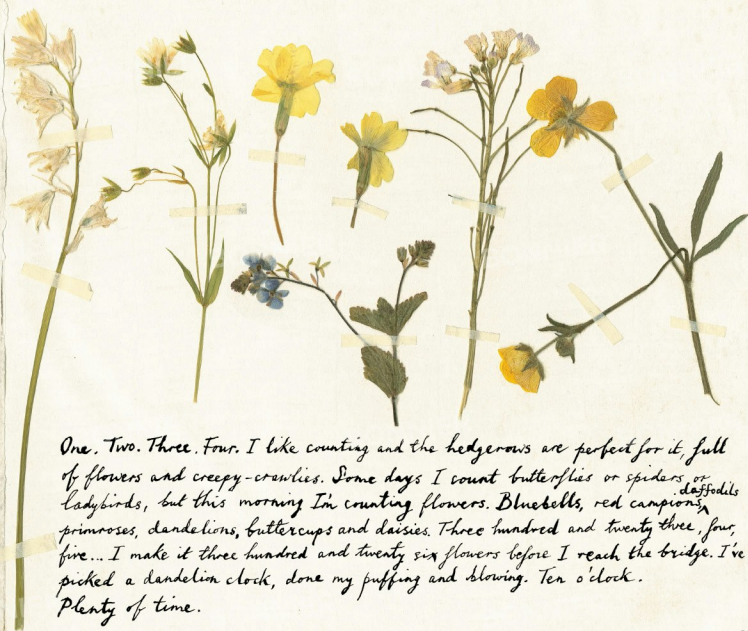 One. Two. Three. Four. I like counting and the hedgerows are perfect for it, full
of flowers and creepy-crawlies. Some days I count butterflies or spiders or
ladybirds, but this morning I'm counting flowers. Bluebells, red campions, daffodils
primroses, dandelions, buttercups and daisies. Three hundred and twenty three, four,
five... I make it three hundred and twenty six flowers before I reach the bridge. I've
picked a dandelion clock, done my puffing and blowing. Ten o'clock.
Plenty of time.